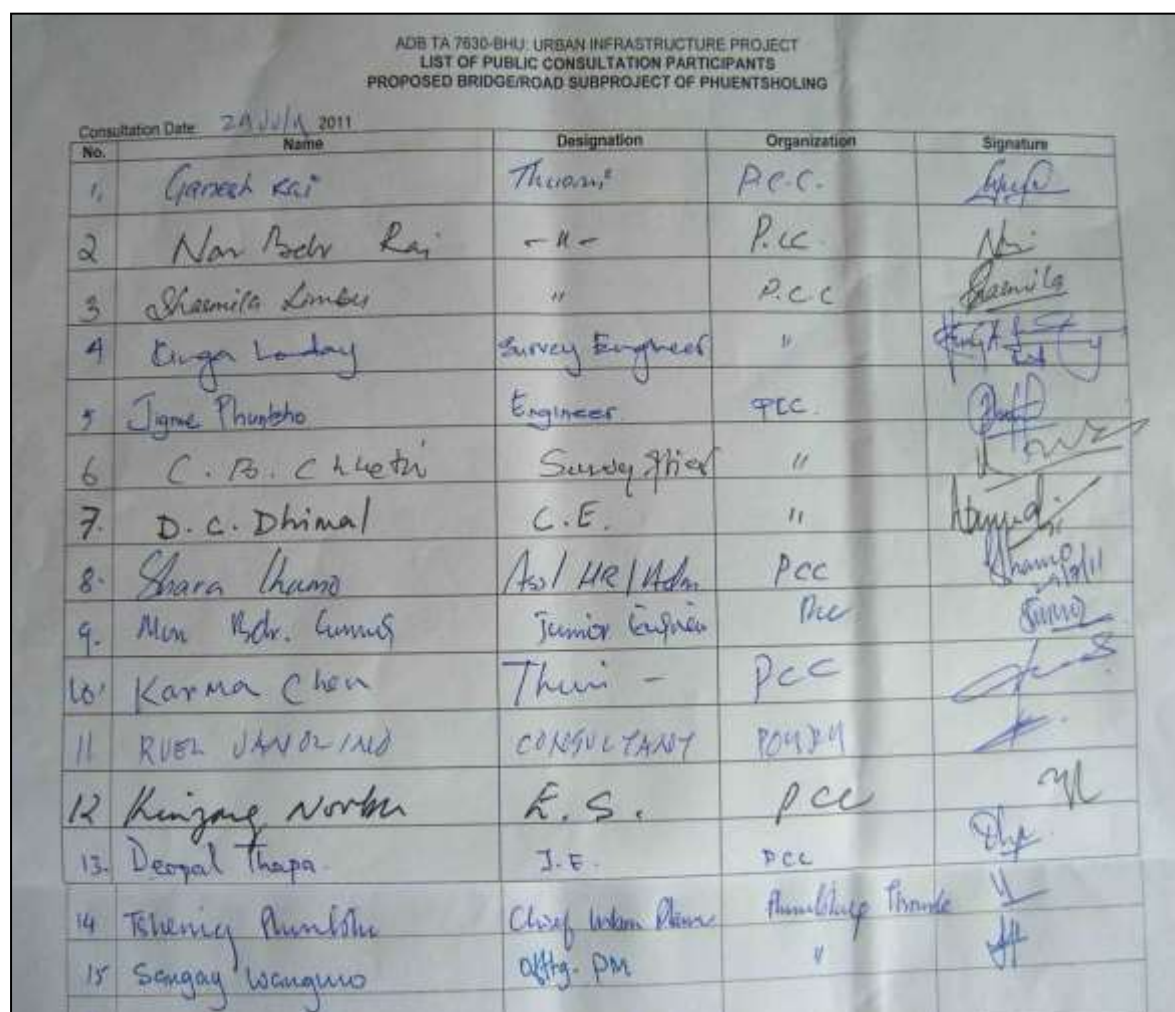 ADB TA 7630-BHU: URBAN INFRASTRUCTURE PROJECT
LIST OF PUBLIC CONSULTATION PARTICIPANTS
PROPOSED BRIDGE/ROAD SUBPROJECT OF PHUENTSHOLING
Consultation Date 29 July 2011
No. Name Designation Organization Signature
1, Ganesh Rai P.C.C.
2 Nar Bdr Rai - " - P.CC
3 Sharmila Limbu " P.C.C Sharmila
4 Kinga Loday Survey Engineer "
5 Jigme Phuntsho Engineer PCC.
6 C. B. Chhetri Survey "
7. D. C. Dhimal C.E. "
8. Lhamo HR/Adm PCC Lhamo
9. Bdr. Gurung Junior Engineer PCC
10. Karma Chen PCC
11 RUEL CONSULTANT
12 Kinzang Norbu E.S. PCC
13. Deopal Thapa. J.E. PCC
14 Tshering Phuntsho Chief Urban Planner
15 Sangay Wangmo Offtg. PM "